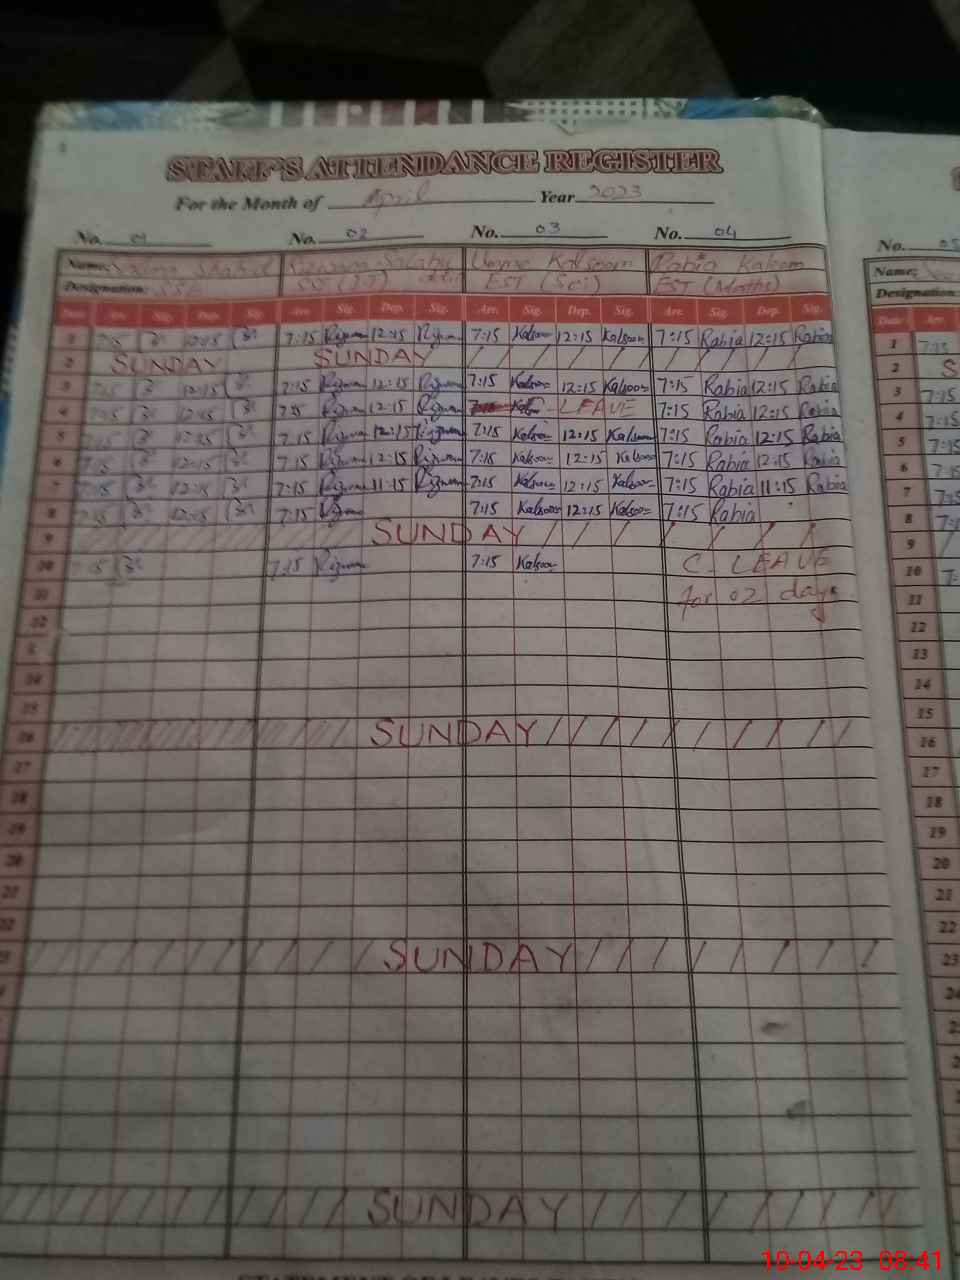 STAFF'S ATTENDANCE REGISTER
For the Month of April Year 2023
No. 01 No. 02 No. 03 No. 04 No. 05
Name; Shahid Kalsoom Rabia Kalsom Name;
Designation: SST EST (Sci) EST (Maths) Designation:
Date Arr. Sig. Dep. Sig. Arr. Sig. Dep. Sig. Arr. Sig. Dep. Sig. Arr. Sig. Dep. Sig. Date Arr.
1 7:15 12:15 7:15 12:15 7:15 Kalsoom 12:15 Kalsoom 7:15 Rabia 12:15 Rabia 1 7:15
2 SUNDAY SUNDAY 2 S
3 7:15 12:15 7:15 12:15 7:15 Kalsoom 12:15 Kalsoom 7:15 Rabia 12:15 Rabia 3 7:15
4 7:15 12:15 7:15 12:15 LEAVE 7:15 Rabia 12:15 Rabia 4 7:15
5 7:15 12:15 7:15 12:15 7:15 Kalsoom 12:15 Kalsoom 7:15 Rabia 12:15 Rabia 5 7:15
6 7:15 12:15 7:15 12:15 7:15 Kalsoom 12:15 Kalsoom 7:15 Rabia 12:15 Rabia 6 7:15
7 7:15 12:15 7:15 11:15 7:15 Kalsoom 12:15 Kalsoom 7:15 Rabia 11:15 Rabia 7 7:15
8 7:15 12:15 7:15 7:15 Kalsoom 12:15 Kalsoom 7:15 Rabia 8
9 SUNDAY 9
10 7:15 7:15 7:15 Kalsoom C. LEAVE 10
11 for 02 days 11
12 12
13
14 14
15 15
16 SUNDAY 16
17 17
18 18
19 19
20 20
21 21
22 22
SUNDAY 23
24
SUNDAY
10-04-23 08:41